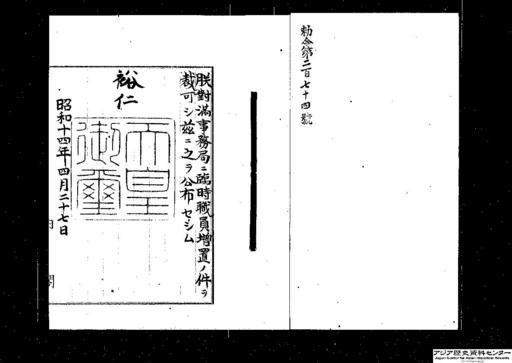 勅令第二百七十四號
朕對滿事務局ニ臨時職員增置ノ件ヲ
裁可シ茲ニ之ヲ公布セシム
裕仁
天皇
御璽
昭和十四年四月二十七日
内閣
アジア歴史資料センター
Japan Center for Asian Historical Records